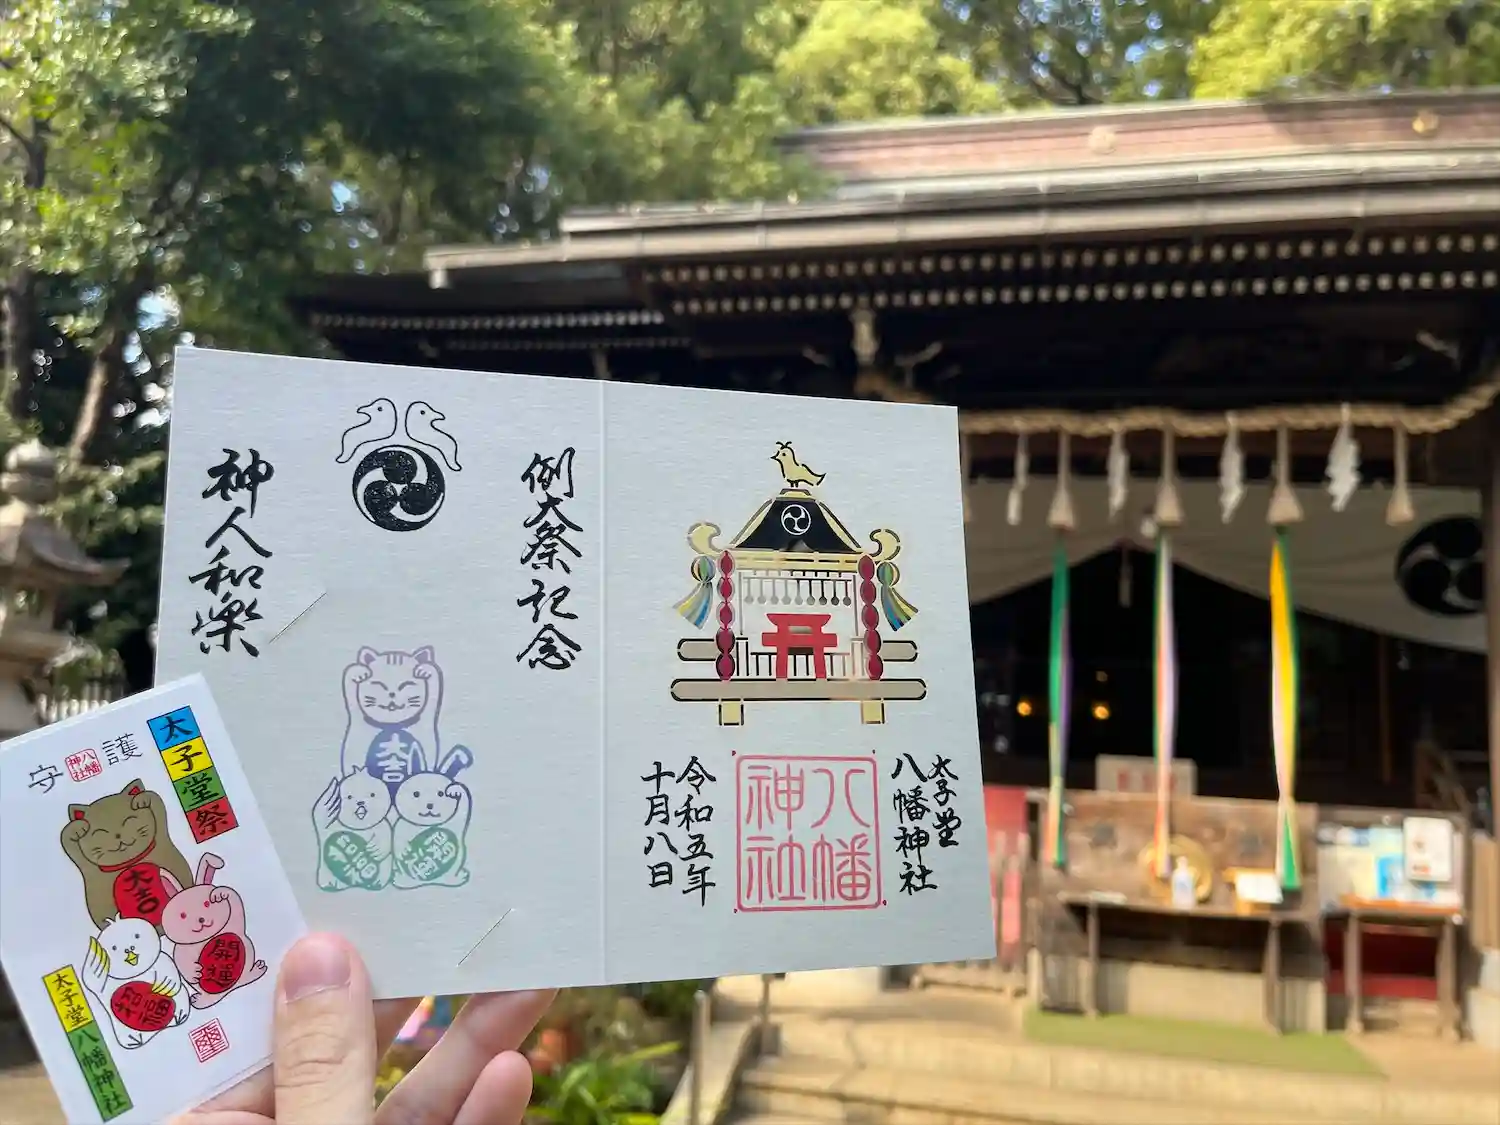 例大祭記念
神人和楽
大吉
招福
太子堂
八幡神社
八幡
神社
令和五年
十月八日
太子堂祭
守護
八幡
神社
大吉
開運
招福
太子堂八幡神社